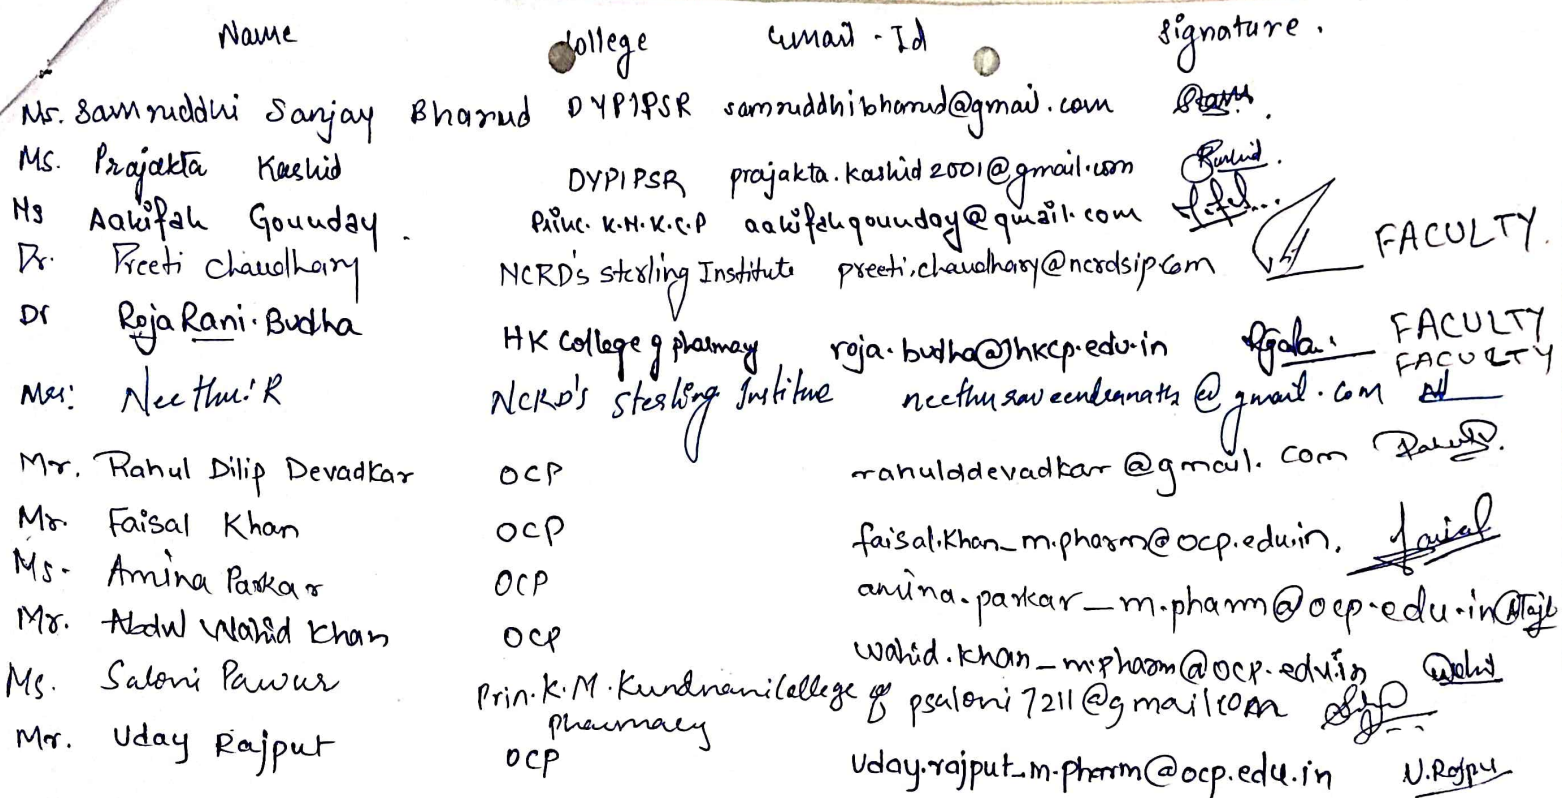 Name College Email - Id Signature.
Ms. Samruddhi Sanjay Bharud DYPIPSR samruddhibharud@gmail.com
Ms. Prajakta Kashid DYPIPSR prajakta.kashid2001@gmail.com Kashid.
Ms Aakifah Gounday. Princ. K.M.K.C.P aakifahgounday@gmail.com
Dr. Preeti Chaudhary NCRD's sterling Institute preeti.chaudhary@ncrdsip.com FACULTY.
Dr Roja Rani. Budha HK College of pharmacy roja.budha@hkcp.edu.in FACULTY
Mrs: Neethu: R NCRD's Sterling Institue neethusaveendranath@gmail.com FACULTY
Mr. Rahul Dilip Devadkar OCP rahulddevadkar@gmail.com Rahul
Mr. Faisal Khan OCP faisal.khan_m.pharm@ocp.edu.in. faisal
Ms. Amina Parkar OCP amina.parkar_m.pharm@ocp.edu.in
Mr. Abdul Wahid Khan OCP wahid.khan_m.pharm@ocp.edu.in Wahid
Ms. Saloni Pawar Prin. K.M. Kundnani College of pharmacy psaloni7211@gmail.com
Mr. Uday Rajput OCP uday.rajput_m.pharm@ocp.edu.in U.Rajpu